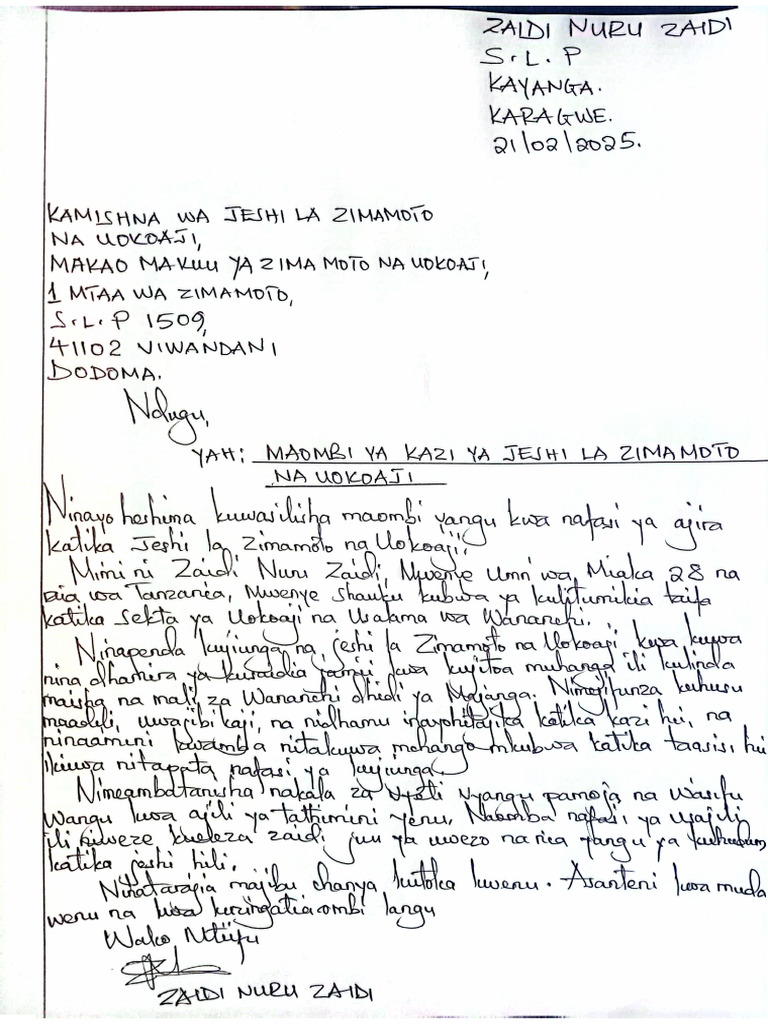 ZAIDI NURU ZAIDI
S.L.P
KAYANGA.
KARAGWE.
21/02/2025.
KAMISHNA WA JESHI LA ZIMAMOTO
NA UOKOAJI,
MAKAO MAKUU YA ZIMA MOTO NA UOKOAJI,
1 MTAA WA ZIMAMOTO,
S.L.P 1509,
41102 VIWANDANI
DODOMA.
Ndugu,
YAH: MAOMBI YA KAZI YA JESHI LA ZIMAMOTO
NA UOKOAJI
Ninayo heshima kuwasilisha maombi yangu kwa nafasi ya ajira
katika Jeshi la Zimamoto na Uokoaji,
Mimi ni Zaidi Nuru Zaidi, Mwenye Umri wa, Miaka 28 na
raia wa Tanzania, Mwenye shauku kubwa ya kulitumikia taifa
katika sekta ya Uokoaji na Usalama wa Wananchi.
Ninapenda kujiunga na jeshi la Zimamoto na Uokoaji kwa kuwa
nina dhamira ya kusaidia jamii kwa kujitoa muhanga ili kulinda
maisha na mali za Wananchi dhidi ya Majanga. Nimejifunza kuhusu
maadili, uwajibikaji, na nidhamu inayohitajika katika kazi hii, na
ninaamini kwamba nitakuwa mchango mkubwa katika taasisi hii
ikiwa nitapata nafasi ya kujiunga.
Nimeambatanisha nakala za vyeti vyangu pamoja na Wasifu
Wangu kwa ajili ya tathimini yenu. Naomba nafasi ya usaili
ili niweze kueleza zaidi juu ya uwezo na nia yangu ya kuhudumu
katika jeshi hili.
Ninatarajia majibu chanya kutoka kwenu. Asanteni kwa muda
wenu na kwa kuzingatia ombi langu
Wako Mtiifu
ZAIDI NURU ZAIDI